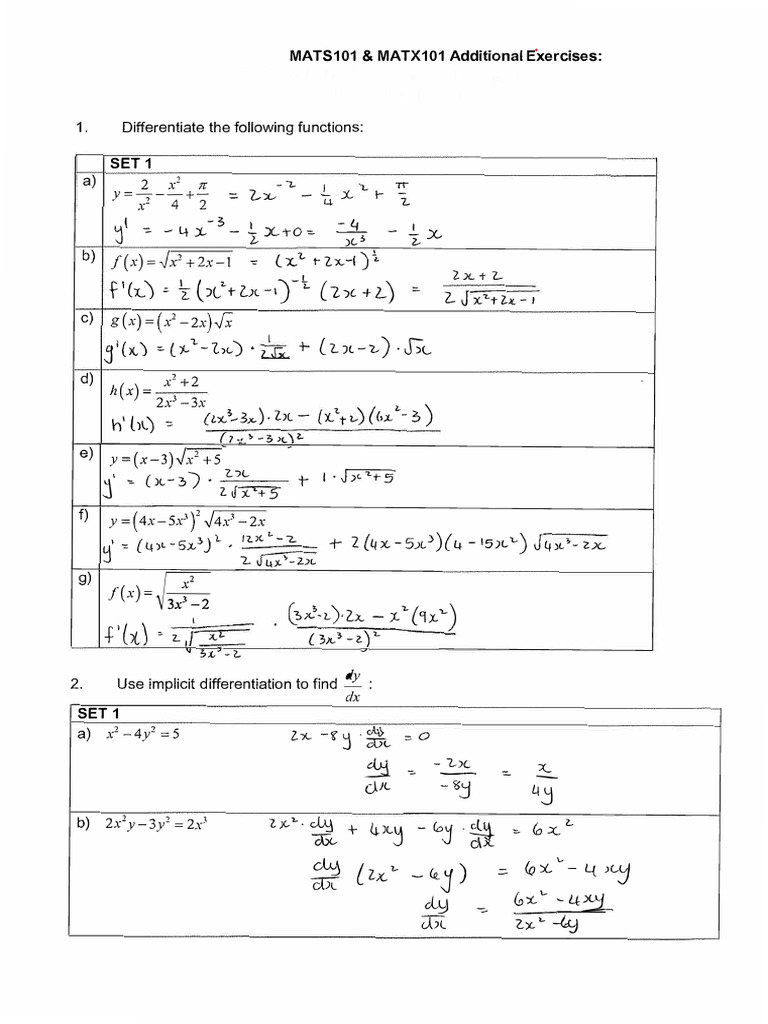 MATS101 & MATX101 Additional Exercises:
1. Differentiate the following functions:
SET 1
a) y = 2/x² − x²/4 + π/2 = 2x⁻² − 1/4 x² + π/2
y' = −4x⁻³ − 1/2 x + 0 = −4/x³ − 1/2 x
b) f(x) = √(x² + 2x − 1) = (x² + 2x − 1)^(1/2)
f'(x) = 1/2 (x² + 2x − 1)^(−1/2) (2x + 2) = (2x + 2)/(2√(x² + 2x − 1))
c) g(x) = (x² − 2x)√x
g'(x) = (x² − 2x) · 1/(2√x) + (2x − 2) · √x
d) h(x) = (x² + 2)/(2x³ − 3x)
h'(x) = ((2x³ − 3x) · 2x − (x² + 2)(6x² − 3))/(2x³ − 3x)²
e) y = (x − 3)√(x² + 5)
y' = (x − 3) · 2x/(2√(x² + 5)) + 1 · √(x² + 5)
f) y = (4x − 5x³)² √(4x³ − 2x)
y' = (4x − 5x³)² · (12x² − 2)/(2√(4x³ − 2x)) + 2(4x − 5x³)(4 − 15x²)√(4x³ − 2x)
g) f(x) = √(x²/(3x³ − 2))
f'(x) = 1/(2√(x²/(3x³ − 2))) · ((3x³ − 2) · 2x − x²(9x²))/(3x³ − 2)²
2. Use implicit differentiation to find dy/dx :
SET 1
a) x² − 4y² = 5 2x − 8y · dy/dx = 0
dy/dx = −2x/−8y = x/4y
b) 2x²y − 3y² = 2x³ 2x² · dy/dx + 4xy − 6y · dy/dx = 6x²
dy/dx (2x² − 6y) = 6x² − 4xy
dy/dx = (6x² − 4xy)/(2x² − 6y)